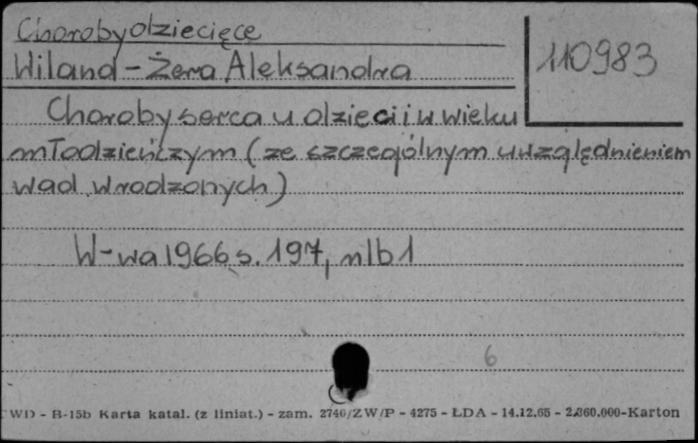 Choroby dziecięce
Wiland-Żera Aleksandra
110983
Choroby serca u dzieci i w wieku
młodzieńczym (ze szczególnym uwzględnieniem
wad wrodzonych)
W-wa 1966 s. 197, nlb 1
6
WD - B-15b Karta katal. (z liniat.) - zam. 2740/ZW/P - 4275 - ŁDA - 14.12.65 - 2.860.000-Karton